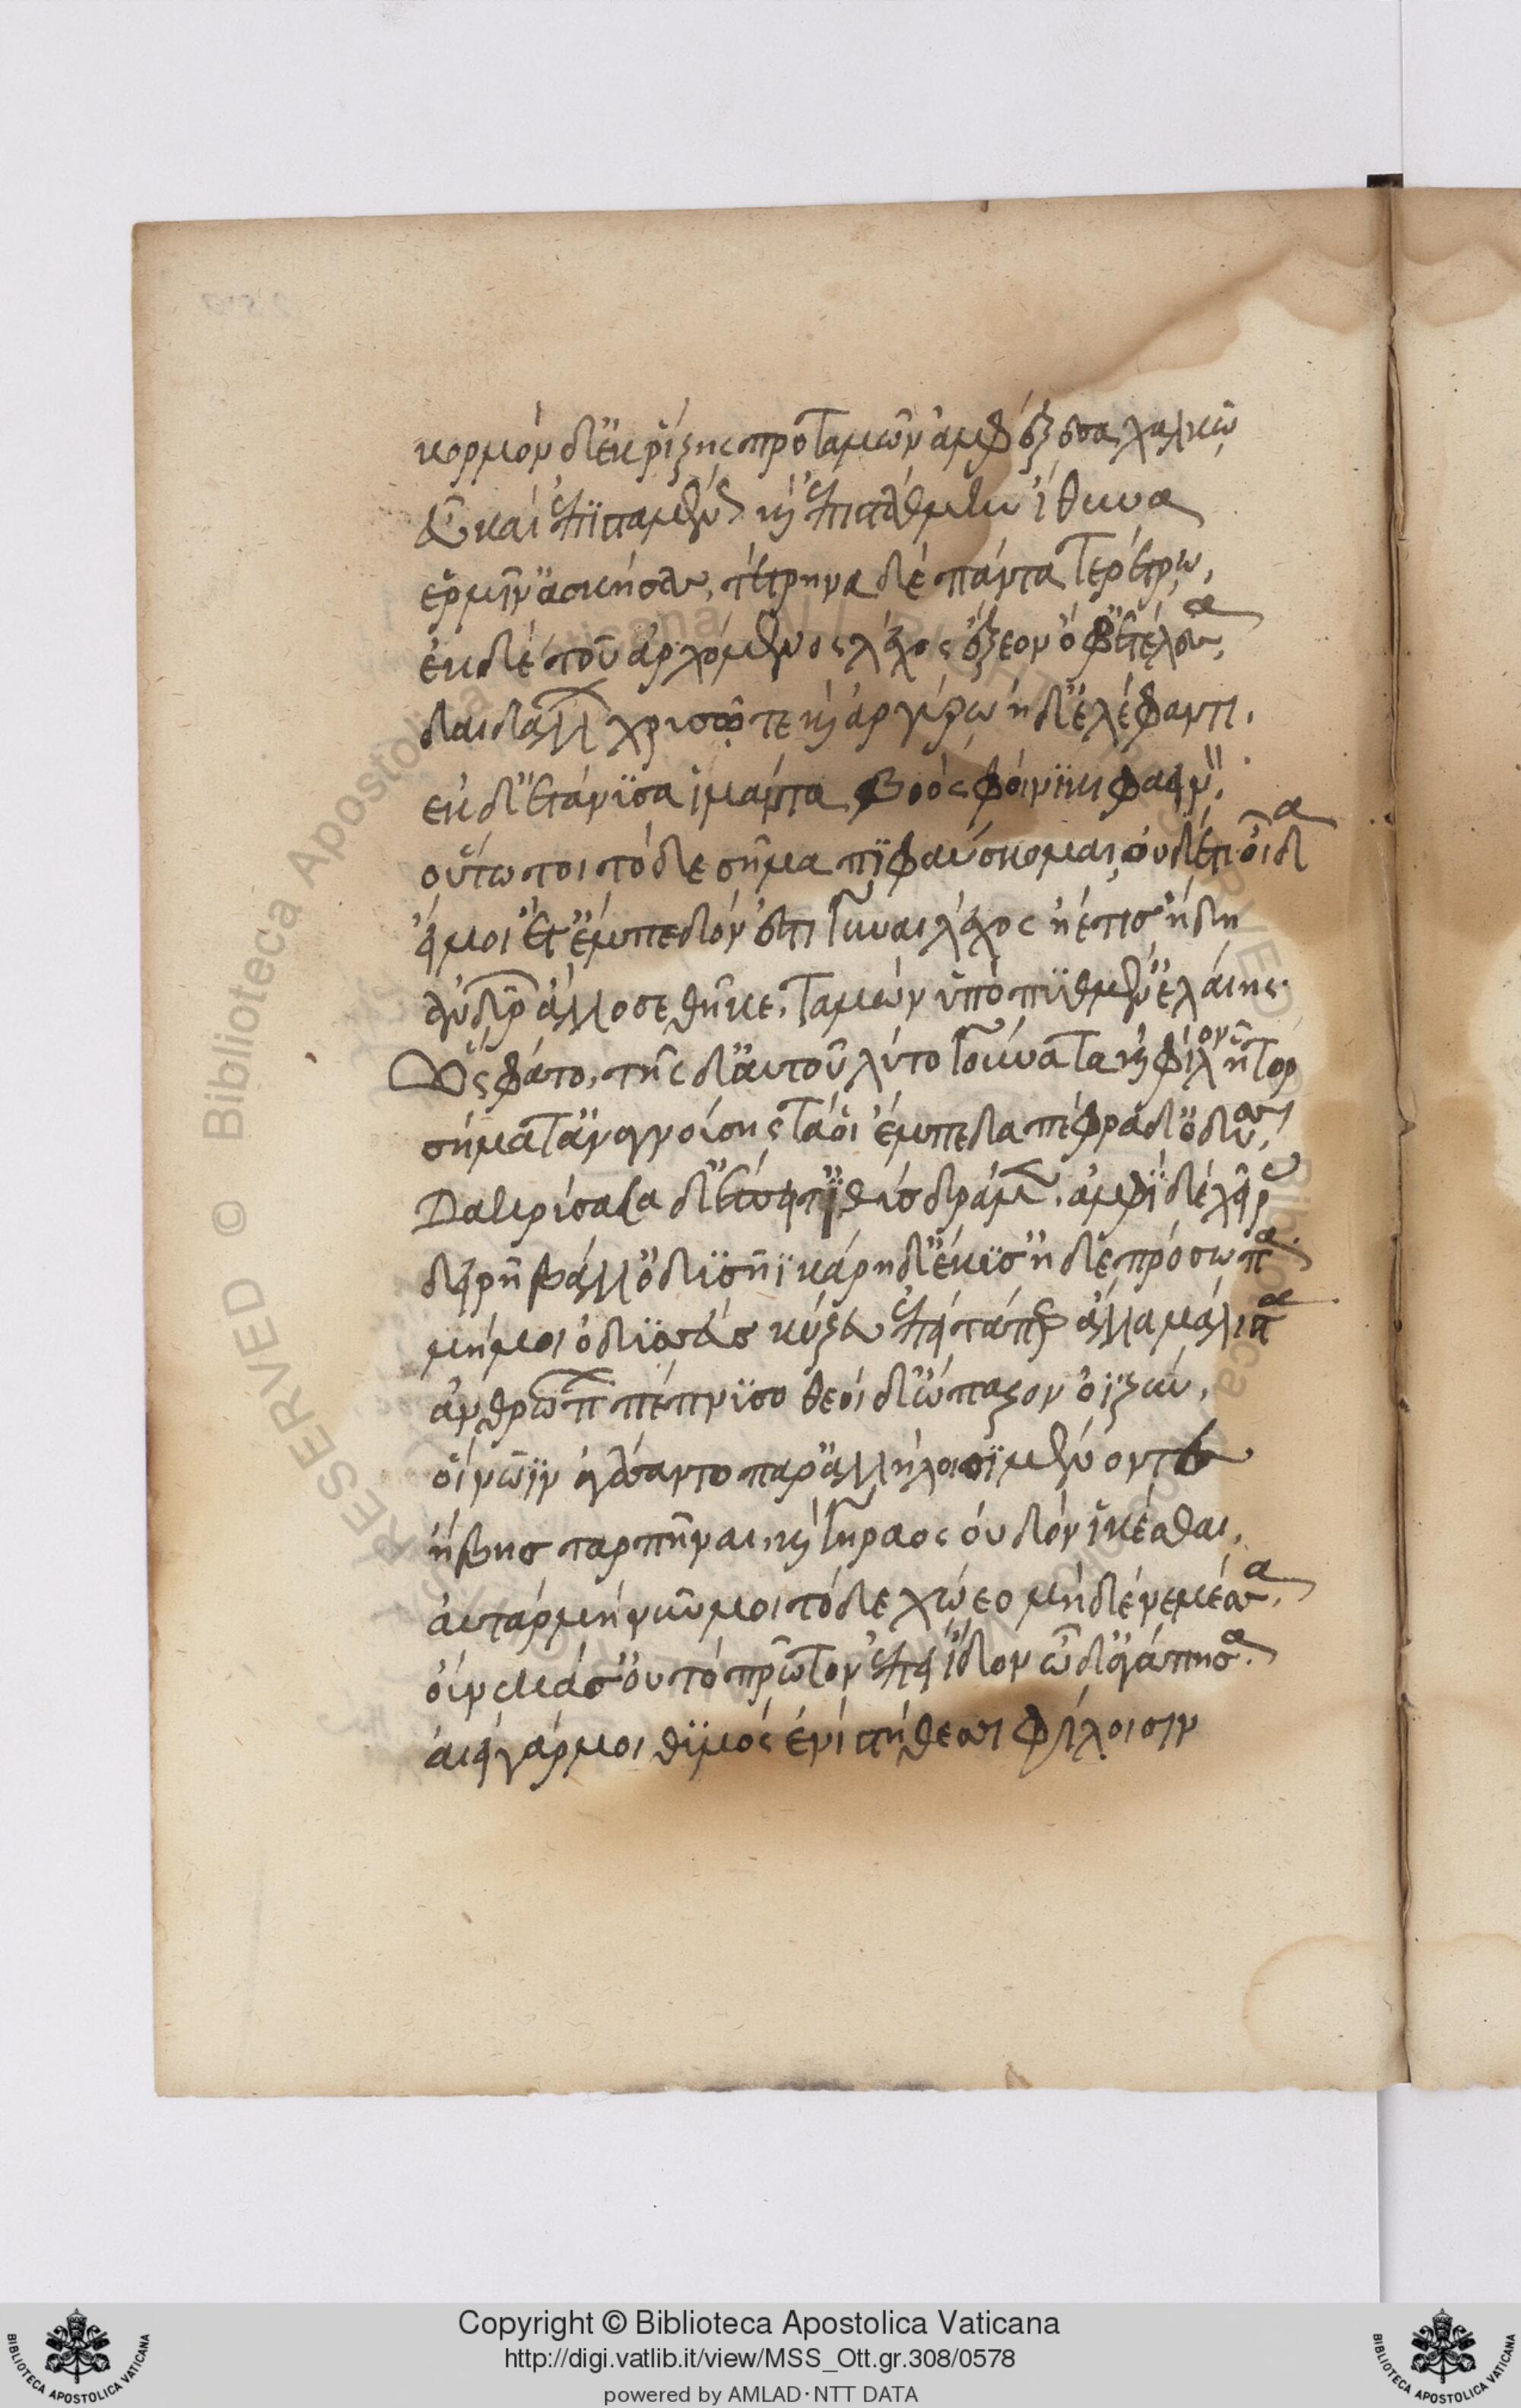 κορμὸν δ' ἐκ ῥίζης προταμὼν ἀμφέξεσα χαλκῶ
εὖ καὶ ἐπισταμένως καὶ ἐπὶ στάθμην ἴθυνα
ἑρμῖν' ἀσκήσας, τέτρηνα δὲ πάντα τερέτρω,
ἐκ δὲ τοῦ ἀρχόμενος λέχος ἔξεον ὄφρ' ἐτέλεσσα,
δαιδάλλων χρυσῶ τε καὶ ἀργύρω ἠδ' ἐλέφαντι.
ἐκ δ' ἐτάνισα ἱμάντα βοὸς φοίνικι φαεινόν.
οὕτω τοι τόδε σῆμα πιφαύσκομαι, οὐδέ τι οἶδα
εἴ μοι ἔτ' ἔμπεδόν ἐστι γύναι λέχος ἠέ τις ἤδη
ἀνδρῶν ἄλλοσε θῆκε, ταμὼν ὑπὸ πυθμέν' ἐλαίης.
Ὣς φάτο, τῆς δ' αὐτοῦ λύτο γούνατα καὶ φίλον ἦτορ
σήματ' ἀναγνοίσης τά οἱ ἔμπεδα πέφραδ' ὀδυσσεύς,
Δακρίσασα δ' ἔπειτ' ἰθὺς δράμεν. ἀμφὶ δὲ χεῖρας
δειρῆ βάλλ' ὀδισῆϊ κάρη δ' ἔκισ' ἠδὲ πρόσωπα.
μή μοι ὀδισσεῦ σκύζευ ἐπεὶ τά περ ἄλλα μάλιστα
ἀνθρώπων πέπνισο θεοὶ δ' ὤπαζον ὀϊζύν,
οἳ νῶϊν ἀγάσαντο παρ' ἀλλήλοισι μένοντε
ἥβης ταρπῆναι, καὶ γήραος οὐδὸν ἱκέσθαι,
αὐτὰρ μὴ νῦν μοι τόδε χώεο μηδὲ νεμέσσα,
οὕνεκά σ' οὐ τὸ πρῶτον ἐπεὶ ἴδον ὧδ' ἀγάπησα.
αἰεὶ γάρ μοι θιμὸς ἐνὶ στήθεσσι φίλοισιν
Copyright © Biblioteca Apostolica Vaticana
http://digi.vatlib.it/view/MSS_Ott.gr.308/0578
powered by AMLAD·NTT DATA